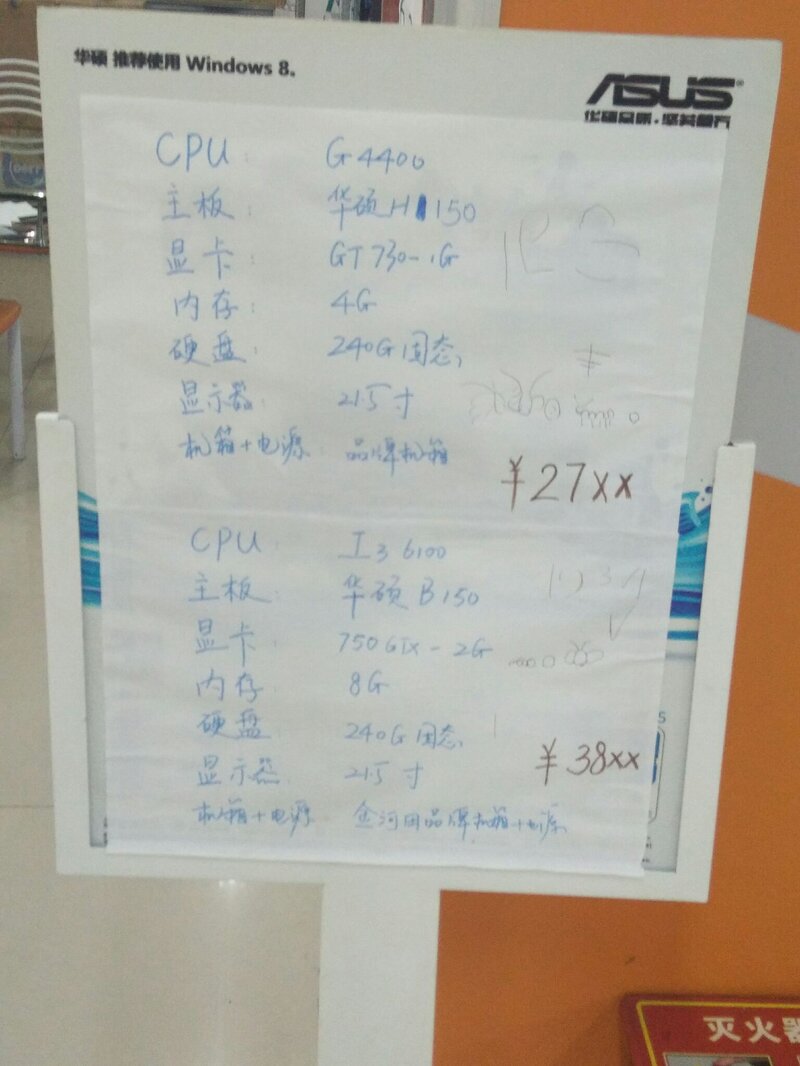 华硕 推荐使用 Windows 8。
ASUS
华硕品质·坚若磐石
CPU: G4400
主板: 华硕H150
显卡: GT730-1G
内存: 4G
硬盘: 240G固态
显示器: 21.5寸
机箱+电源: 品牌机箱
¥27xx
CPU I3 6100
主板: 华硕B150
显卡: 750GTX-2G
内存: 8G
硬盘: 240G固态
显示器 21.5寸
¥38xx
机箱+电源 金河田品牌机箱+电源
灭火器